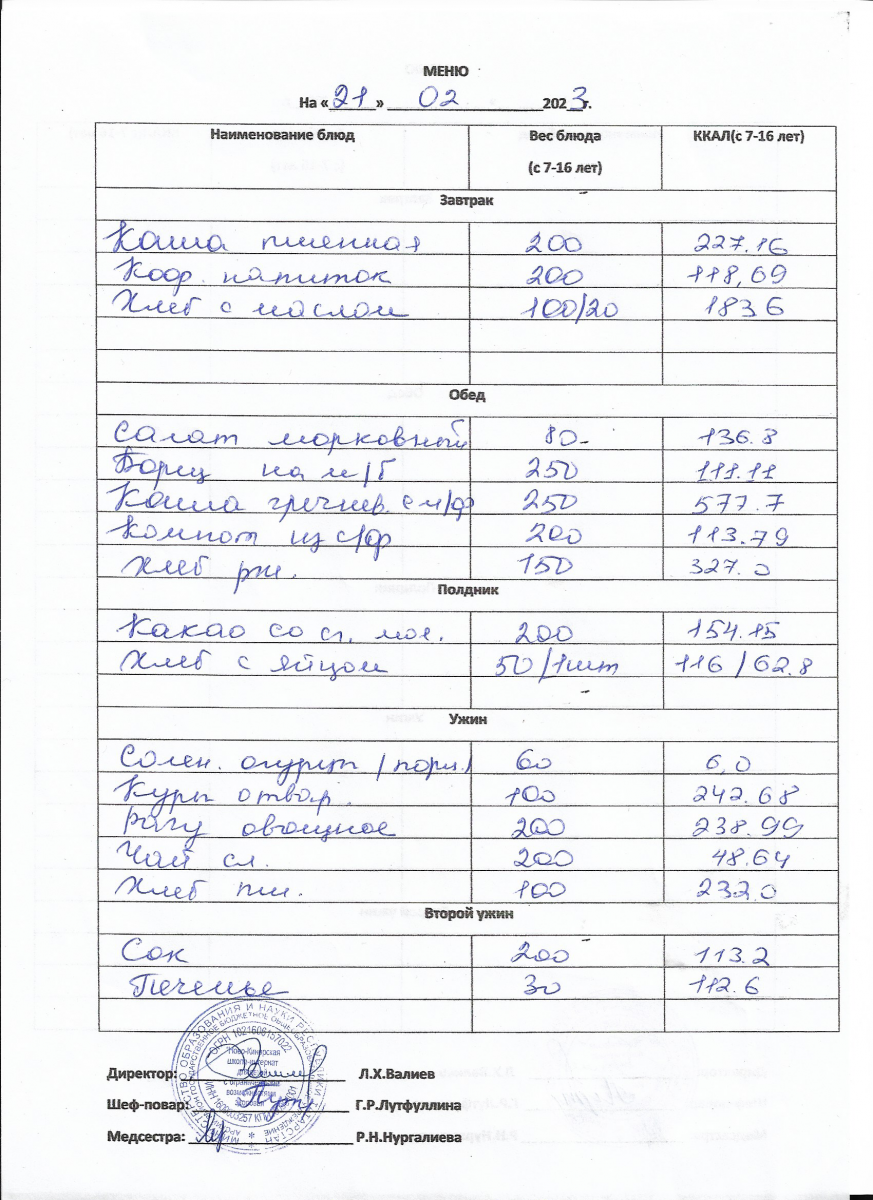 МЕНЮ
На «21» 02 2023г.
Наименование блюд Вес блюда (с 7-16 лет) ККАЛ(с 7-16 лет)
Завтрак
Каша пшенная 200 227.16
Коф. напиток 200 118,69
Хлеб с маслом 100/20 183.6
Обед
Салат морковный 80- 136.8
Борщ на м/б 250 111.11
Каша гречнев. с м/ф 250 577.7
Компот из с/ф 200 113.79
Хлеб рж. 150 327.0
Полдник
Какао со сг. мол. 200 154.15
Хлеб с яйцом 50/1шт 116/62.8
Ужин
Солен. огурец /порц./ 60 6,0
Куры отвар. 100 242.68
Рагу овощное 200 238.99
Чай сл. 200 48.64
Хлеб пш. 100 232.0
Второй ужин
Сок 200 113.2
Печенье 30 112.6
Директор: Л.Х.Валиев
Шеф-повар: Г.Р.Лутфуллина
Медсестра: Р.Н.Нургалиева
ОГРН 1021606157022
школа-интернат